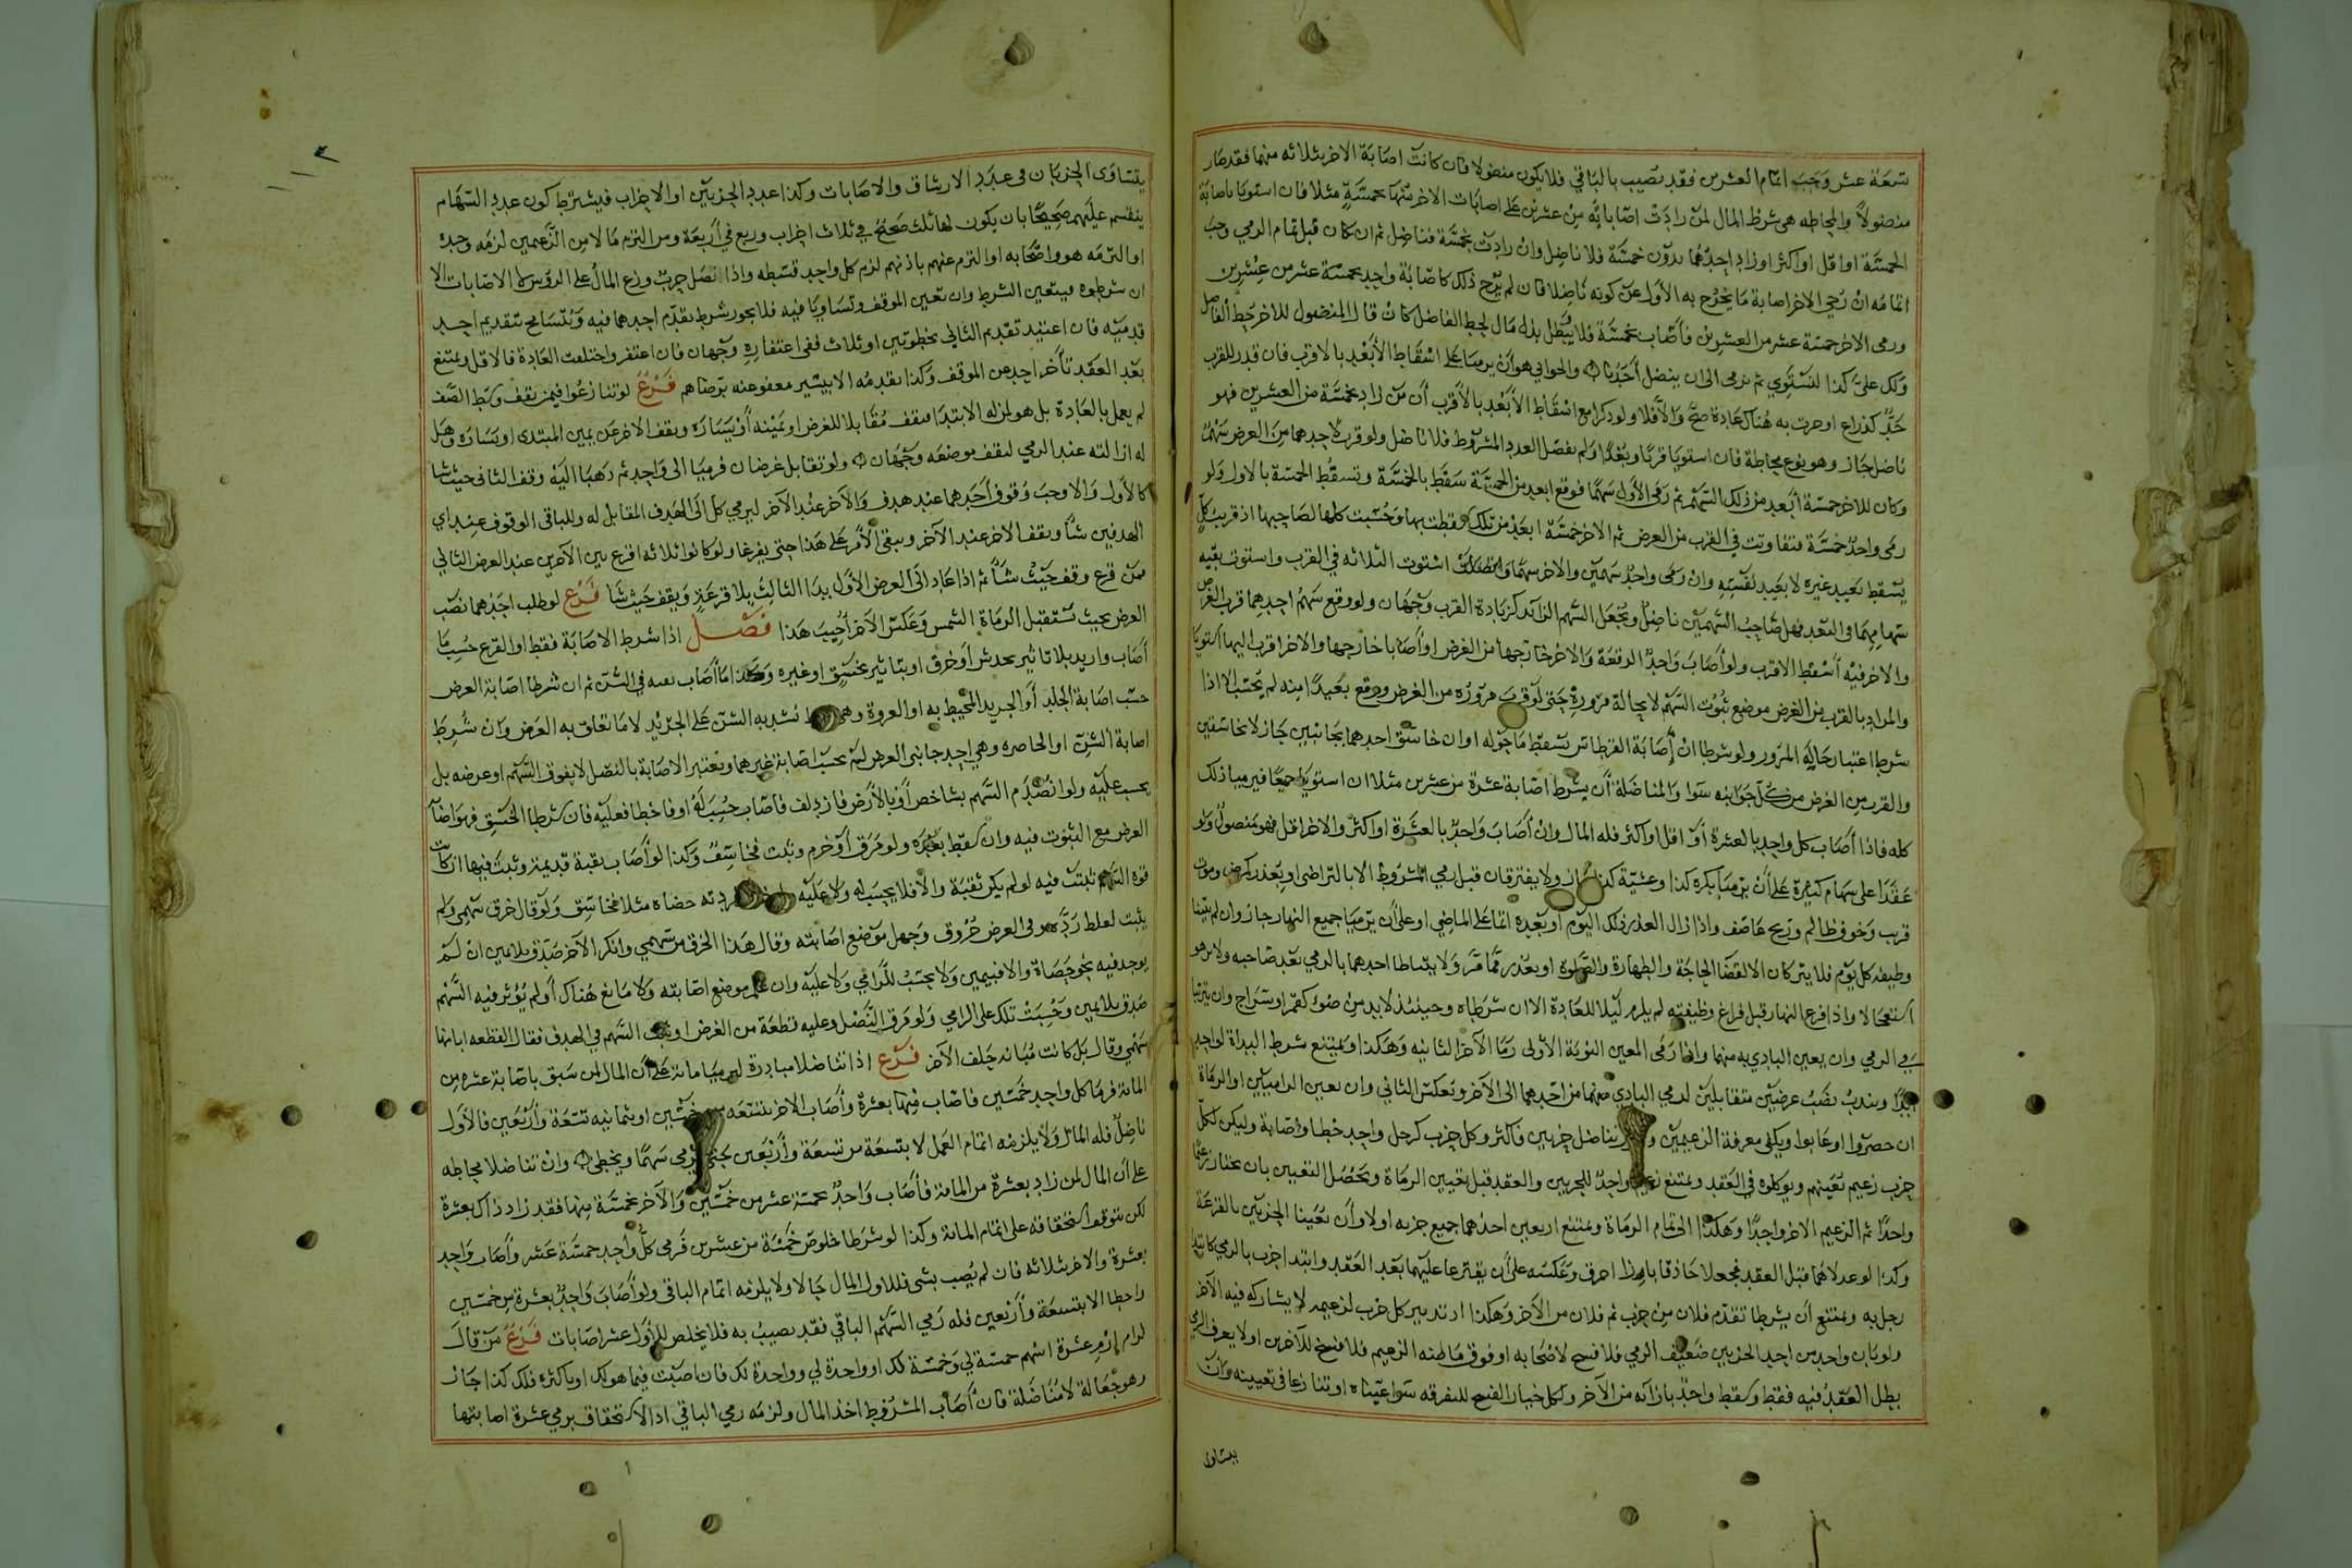 تسعة عشر وجب اتمام العشرين فقد يصيب بالباقي فلا يكون منضولا فان كانت اصابة الاخر بثلاثه منها فقد صار
منضولاً والمحاطه هي شرط المال لمن زادت اصاباته من عشرين على اصابات الاخر منها بخمسة مثلا فان استويا باصابة
الخمسة او اقل او اكثر او زاد احدهما بدون خمسة فلا ناضل وان زادت بخمسة فناضل ثم ان كان قبل تمام الرمي وجب
اتمامه ان رجي الاخر اصابة ما يخرج به الاول عن كونه ناضلا فان لم يرج ذلك كاصابة واحد بخمسة عشر من عشرين
ورمى الاخر خمسة عشر من العشرين فاصاب بخمسة فلا يبطل بذل مال لحط الفاضل كان قال المنضول للاخر حط الفاضل
ولك علي كذا لنستوي ثم نرمي الى ان ينضل احدنا والحوابي هو ان يرميا على اسقاط الابعد بالاقرب فان قدر للقرب
حد كذراع او جرت به هناك عادة صح والا فلا ولو ذكرا مع اسقاط الابعد بالاقرب ان من زاد بخمسة من العشرين فهو
ناضل جاز وهو نوع محاطة فان استويا قربا وبعدا ولم يفضل العدد المشروط فلا ناضل ولو قرب لاحدهما من الغرض سهم
وكان للاخر خمسة ابعد من ذلك السهم ثم رمى الاول سهما فوقع ابعد من الخمسة سقط بالخمسة وتسقط الخمسة بالاول ولو
رمى واحد خمسة متفاوتت في القرب من الغرض ثم الاخر خمسة ابعد من تلك سقطت بها وحسبت كلها لصاحبها اذ قريب كل
يسقط بعيد غيره لا بعيد نفسه وان رمى واحد سهمين والاخر سهما استوت الثلاثه في القرب واستوت بقيه
سهامهما في البعد فهل صاحب السهمين ناضل ويجعل السهم الزائد كزيادة القرب وجهان ولو وقع سهم احدهما قرب الغرض
والاخر فيه اسقط الاقرب ولو اصاب واحد الرقعة والاخر خارجها من الغرض او اصابا خارجها والاخر اقرب اليها استويا
والمراد بالقرب من الغرض موضع ثبوت السهم لا بحالة مروره حتى لو قرب مروره من الغرض ووقع بعيدا منه لم يحتسب الا اذا
شرطا اعتبار حالة المرور ولو شرطا ان اصابة القرطاس تسقط ما حوله او ان خاسق احدهما بحابيين جاز لا بخاسقين
والقرب من الغرض من كل جوانبه سوا والمناضلة ان يشرط اصابة عشرة من عشرين مثلا ان استويا جميعا فيرميا ذلك
كله فاذا اصاب كل واحد بالعشرة او اقل او اكثر فله المال وان اصاب واحد بالعشرة او اكثر والاخر اقل فهو منضول ولو
عقدا على سهام كثيرة على ان يرميا بكره كذا وعشية كذا جاز ولا يفترقان قبل رمي المشروط الا بالتراضي او بعذر كمرض وموت
قريب وخوف ظالم وريح عاصف واذا زال العذر ذلك اليوم او بعده اتما على الماضي او على ان يرميا جميع النهار جاز وان لم يبينا
وظيفه كل يوم فلا يتركان الا لقضا الحاجة والطهارة والصلوه او بعذر مما مر ولا يتباطا احدهما بالرمي بعد صاحبه ولا يرهو
استعجالا واذا فرغ النهار قبل فراغ وظيفته لم يلزم ليلا للعادة الا ان شرطاه وحينئذ لا بد من ضوء كقمر او سراج وان يترتبا
في الرمي وان يعين البادي به منهما واذا رمى المعين النوبة الاولى رما الاخر الثانيه وهكذا ويمتنع شرط البداة لواحد
ابدا ويندب نصب غرضين متقابلين لرمي البادي منهما من احدهما الى الاخر وبعكس الثاني وان يعين الراميين او الرماة
ان حصروا او غابوا ويكفي معرفة الزعيمين يتناضل حزبين فاكثر وكل حزب كرجل واحد خطا واصابة وليكن لكل
حزب زعيم يعينهم ويوكلوه في العقد ويمتنع زعيم واحد للحزبين والعقد قبل تعيين الرماة ويحصل التعيين بان يختار زعيم
واحدا ثم الزعيم الاخر واحدا وهكذا الى تمام الرماة ويمتنع اربعين احدهما جميع حزبه اولا وان تعينا الحزبين بالقرعة
وكذا لو عدلاهما قبل العقد فجعلا حاذقا بازاء اخرق وعكسه على ان يقترعا عليهما بعد العقد وابتدا حزب بالرمي كابتدا
رجل به ويمتنع ان يشرطا تقدم فلان من حزب ثم فلان من الاخر وهكذا اذ تدبير كل حزب لزعيمه لا يشاركه فيه الاخر
ولو بان واحد من احد الحزبين ضعيف الرمي فلا فسخ لاصحابه او فوق ما ظنه الزعيم فلا فسخ للاخرين او لا يعرف الرمي
بطل العقد فيه فقط وسقط واحد بازائه من الاخر ولكل خيار الفسخ للتفرقه سوا عيناه او تنازعا في تعيينه وان
يتساوى
يتساوى الحزبان في عدد الارشاق والاصابات وكذا عدد الحزبين او الاحزاب فيشترط كون عدد السهام
ينقسم عليهم صحيحا بان يكون لها ثلث صحيح في ثلاث احزاب وربع في اربعة ومن التزم مالا من الزعيمين لزمه وحده
او التزمه هو واصحابه او التزم عنهم باذنهم لزم كل واحد قسطه واذا نضل حزب وزع المال على الرؤس لا الاصابات الا
ان شرطوه فيتعين الشرط وان تعين الموقف وتساويا فيه فلا يجوز شرط تقدم احدهما فيه ويتسامح بتقديم احد
قدميه فان اعتيد تقديم الثاني بخطوتين او ثلاث ففي اعتفاره وجهان فان اعتفر واختلفت العادة فالاقل ويمتنع
بعد العقد تاخر احد عن الموقف وكذا تقدمه الا بيسير معفو عنه برضاهم فرع لو تنازعوا فيمن يقف وسط الصف
لم يعمل بالعادة بل هو لمن له الابتدا فيقف مقابلا للغرض او يمينه او يساره ويقف الاخر عن يمين المبتدى او يساره وهل
له ازالته عند الرمي ليقف موضعه وجهان ولو تقابل غرضان فرميا الى واحد ثم ذهبا اليه وقف الثاني حيث شا
كالاول والا وجب وقوف احدهما عند هدف والاخر عند الاخر ليرمي كل الى الهدف المقابل له وللباقي الوقوف عند اي
الهدفين شا ويقف الاخر عند الاخر ويبقى الامر على هذا حتى يفرغا ولو كانوا ثلاثه اقرع بين الاخرين عند الغرض الثاني
فمن قرع وقف حيث شا ثم اذا عاد الى الغرض الاول بدا الثالث بلا قرعة ويقف حيث شا فرع لو طلب احدهما نصب
الغرض بحيث تستقبل الرماة الشمس وعكس الاخر اجيب هذا فصل اذا شرط الاصابة فقط او القرع حسب ما
اصاب واريد بلا تاثير بخدش او خرق او بتاثير بخسق او غيره وكذا ما اصاب نعبه في الشن ثم ان شرطا اصابة الغرض
حسب اصابة الجلد او الجريد المحيط به او العروة وهي تشد به الشن على الجريد لا ما تعلق به الغرض وان شرط
اصابة الشن او الخاصره وهي احد جانبي الغرض لم يحسب اصابة غيرهما ويعتبر الاصابة بالنصل لا بفوق السهم او عرضه بل
يحسب عليه ولو انصدم السهم بشاخص او بالارض فازدلف فاصاب حسب له او فاخطا فعليه فان شرطا الخسق فهو اصابة
الغرض مع الثبوت فيه وان سقط بعده ولو مرق او خرم وثبت فخاسق وكذا لو اصاب بقبة قديمة وثبت فيها ان كان
قوه السهم تثبت فيه لو لم يكن ثقبة والا فلا يحسب له ولا عليه ردته حصاه مثلا فخاسق ولو قال خرق سهمي ولم
يثبت لغلط رده وهو في الغرض خروق وجهل موضع اصابته وقال هذا الخرق من سهمي وانكر الاخر صدق بلا يمين ان لم
يوجد فيه نحو حصاة والا فبيمين ولا يحسب للرامي ولا عليه وان علم موضع اصابته ولا مانع هناك او لم يؤثر فيه السهم
صدق بلا يمين وحسبت تلك على الرامي ولو مرق النصل وعليه قطعة من الغرض او ثبت السهم في الهدف فقال القطعه ابانها
سهمي وقال بل كانت مبانه خلف الاخر فرع اذا تناضلا مبادرة ليرميا مائة على ان المال لمن سبق باصابة عشره من
المائة فرميا كل واحد خمسين فاصاب فيها بعشرة واصاب الاخر بتسعه من خمسين او بثمانيه تسعة واربعين فالاول
ناضل فله المال ولا يلزمه اتمام العمل لا بتسعة من تسعة واربعين حتى يرمي سهما ويخطئ وان تناضلا محاطه
على ان المال لمن زاد بعشرة من المائة فاصاب واحد بخمسة عشر من خمسين والاخر بخمسة منها فقد زاد ذاك بعشرة
لكن يتوقف استحقاقه على اتمام المائة وكذا لو شرطا خلوص خمسة من عشرين فرمى كل واحد خمسة عشر واصاب واحد
بعشرة والاخر بثلاثه فان لم يصب بشي فللاول المال حالا ولا يلزمه اتمام الباقي ولو اصاب واحد بعشرة من خمسين
واحطا الا بتسعة واربعين فله رمي السهم الباقي فقد يصيب به فلا يخلص للاول عشر اصابات فرع من قال
لرام ارم عشرة اسهم خمسة لي وخمسة لك او واحدة لي وواحدة لك فان اصبت فيما هو لك او باكثره فلك كذا جاز
وهو جعالة لا مناضلة فان اصاب المشروط اخذ المال ولزمه رمي الباقي اذ الاستحقاق برمي عشرة اصابتها